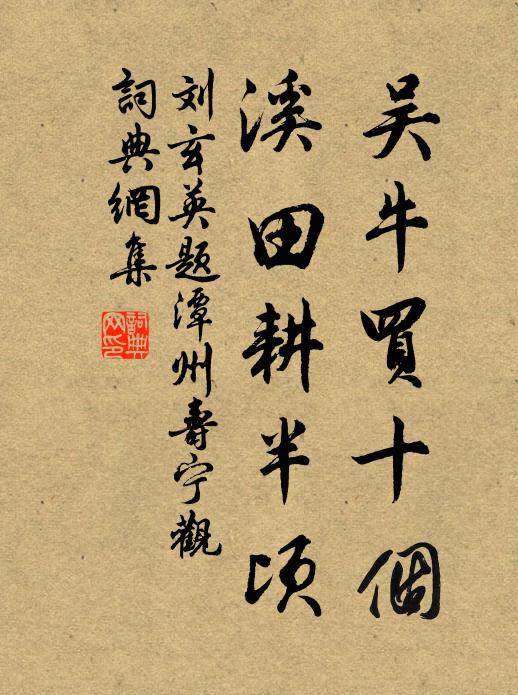 吴牛買十個
溪田耕半頃
刘玄英题潭州壽宁觀
詞典網集
詞典网印